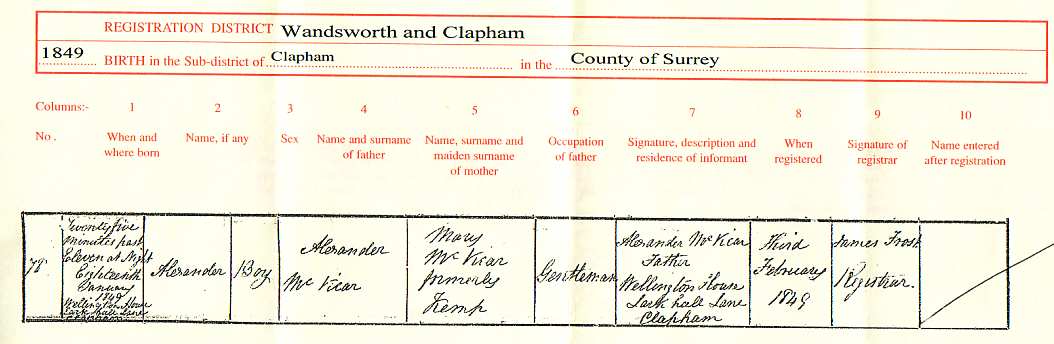 REGISTRATION DISTRICT Wandsworth and Clapham
1849 BIRTH in the Sub-district of Clapham in the County of Surrey
Columns:- 1 2 3 4 5 6 7 8 9 10
No. When and where born
Name, if any
Sex
Name and surname of father
Name, surname and maiden surname of mother
Occupation of father
Signature, description and residence of informant
When registered
Signature of registrar
Name entered after registration
78
Twenty five
minutes past
Eleven at Night
Eighteenth
January
1849
Wellington House
Lark hall Lane
Clapham
Alexander
Boy
Alexander
McVicar
Mary
McVicar
formerly
Kemp
Gentleman
Alexander McVicar
Father
Wellington House
Lark hall Lane
Clapham
Third
February
1849
James Frost
Registrar.